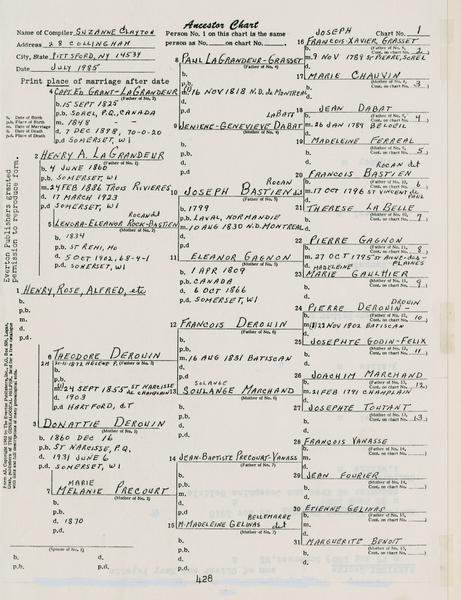 Ancestor Chart
Name of Compiler SUZANNE CLAYTON
Address 28 COLLINGHAM
City, State PITTSFORD, NY 14534
Date JULY 1985
Person No. 1 on this chart is the same
person as No. on chart No. .
Chart No. 1
Print place of marriage after date
b. Date of Birth
p.b. Place of Birth
m. Date of Marriage
d. Date of Death
p.d. Place of Death
1 HENRY, ROSE, ALFRED, etc
b.
p.b.
m.
d.
p.d.
2 HENRY A. LAGRANDEUR
(Father of No. 1)
b. 4 JUNE 1860
p.b. SOMERSET, WI
m. 24 FEB 1886 TROIS RIVIERES
d. 17 MARCH 1923
p.d. SOMERSET, WI
3 DONATTIE DEROUIN
(Mother of No. 1)
b. 1860 DEC 16
p.b. ST NARCISSE, P.Q.
d. 1931 JUNE 6
p.d. SOMERSET, WI
4 CAPT. ED GRANT-LAGRANDEUR
(Father of No. 2)
b. 15 SEPT 1825
p.b. SOREL, P.Q., CANADA
m. 1848
d. 7 DEC 1898, 70-0-20
p.d. SOMERSET, WI
ROCAN dit
5 LENORA-ELEANOR ROCK-BASTIEN
(Mother of No. 2)
b. 1834
p.b. ST REMI, MO
d. 5 OCT 1902, 68-9-1
p.d. SOMERSET, WI
6 THEODORE DEROUIN
(Father of No. 3)
m. 24 SEPT 1855 ST NARCISSE
de CHAMPLAIN
d. 1903
p.d. HARTFORD, CT
MARIE
7 MELANIE PRECOURT
(Mother of No. 3)
b.
p.b.
d. 1870
p.d.
8 PAUL LAGRANDEUR-GRASSET
(Father of No. 4)
b.
p.b.
m. 16 NOV 1818 N.D. de MONTREAL
d.
p.d.
LABATE
9 JENIENE-GENEVIEVE DABAT
(Mother of No. 4)
b.
p.b.
d.
p.d.
ROCAN
10 JOSEPH BASTIEN
(Father of No. 5)
b. 1799
p.b. LAVAL, NORMANDIE
m. 10 AUG 1830 N.D. MONTREAL
d.
p.d.
11 ELEANOR GAGNON
(Mother of No. 5)
b. 1 APR 1809
p.b. CANADA
d. 6 OCT 1866
p.d. SOMERSET, WI
12 FRANCOIS DEROUIN
(Father of No. 6)
b.
p.b.
m. 16 AUG 1831 BATISCAN
d.
p.d.
SOLANGE
13 SOULANGE MARCHAND
(Mother of No. 6)
b.
p.b.
d.
p.d.
14 JEAN-BAPTISTE PRECOURT-VANASS
(Father of No. 7)
b.
p.b.
m.
d.
p.d.
BELLEMARRE
15 M-MADELEINE GELINAS dit
(Mother of No. 7)
b.
p.b.
d.
p.d.
JOSEPH
16 FRANCOIS-XAVIER GRASSET
(Father of No. 8,
Cont. on chart No. 2)
m. 9 NOV 1789 ST PIERRE, SOREL
17 MARIE CHAUVIN
(Mother of No. 8,
Cont. on chart No. 3)
18 JEAN DABAT
(Father of No. 9,
Cont. on chart No. 4)
m. 26 JAN 1789 BELOEIL
19 MADELEINE FERREAL
(Mother of No. 9,
Cont. on chart No. 5)
ROCAN dit
20 FRANCOIS BASTIEN
(Father of No. 10,
Cont. on chart No. 6)
m. 17 OCT 1796 ST VINCENT de
PAUL
21 THERESE LA BELLE
(Mother of No. 10,
Cont. on chart No. 7)
22 PIERRE GAGNON
(Father of No. 11,
Cont. on chart No. 8)
m. 27 OCT 1795 ST ANNE-des-
PLAINES
MADELEINE
23 MARIE GAULTHIER
(Mother of No. 11,
Cont. on chart No. 9)
DROUIN
24 PIERRE DEROUIN-
(Father of No. 12,
Cont. on chart No. 10)
23 NOV 1802 BATISCAN
25 JOSEPHTE GODIN-FELIX
(Mother of No. 12,
Cont. on chart No. 11)
26 JOACHIM MARCHAND
(Father of No. 13,
Cont. on chart No. 12)
m. 21 FEB 1791 CHAMPLAIN
27 JOSEPHTE TOUTANT
(Mother of No. 13,
Cont. on chart No. 13)
28 FRANCOIS VANASSE
(Father of No. 14,
Cont. on chart No. )
29 JEAN FOURIER
(Mother of No. 14,
Cont. on chart No. )
30 ETIENNE GELINAS
(Father of No. 15,
Cont. on chart No. )
31 MARGUERITE BENOIT
(Mother of No. 15,
Cont. on chart No. )
(Spouse of No. 1)
b. d.
p.b. p.d.
Everton Publishers granted
permission to reproduce form.
428